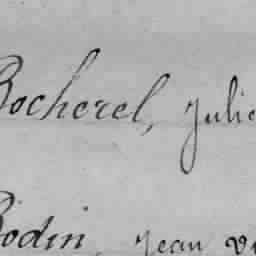 Bocherel, Julie
Bodin, Jean Vi